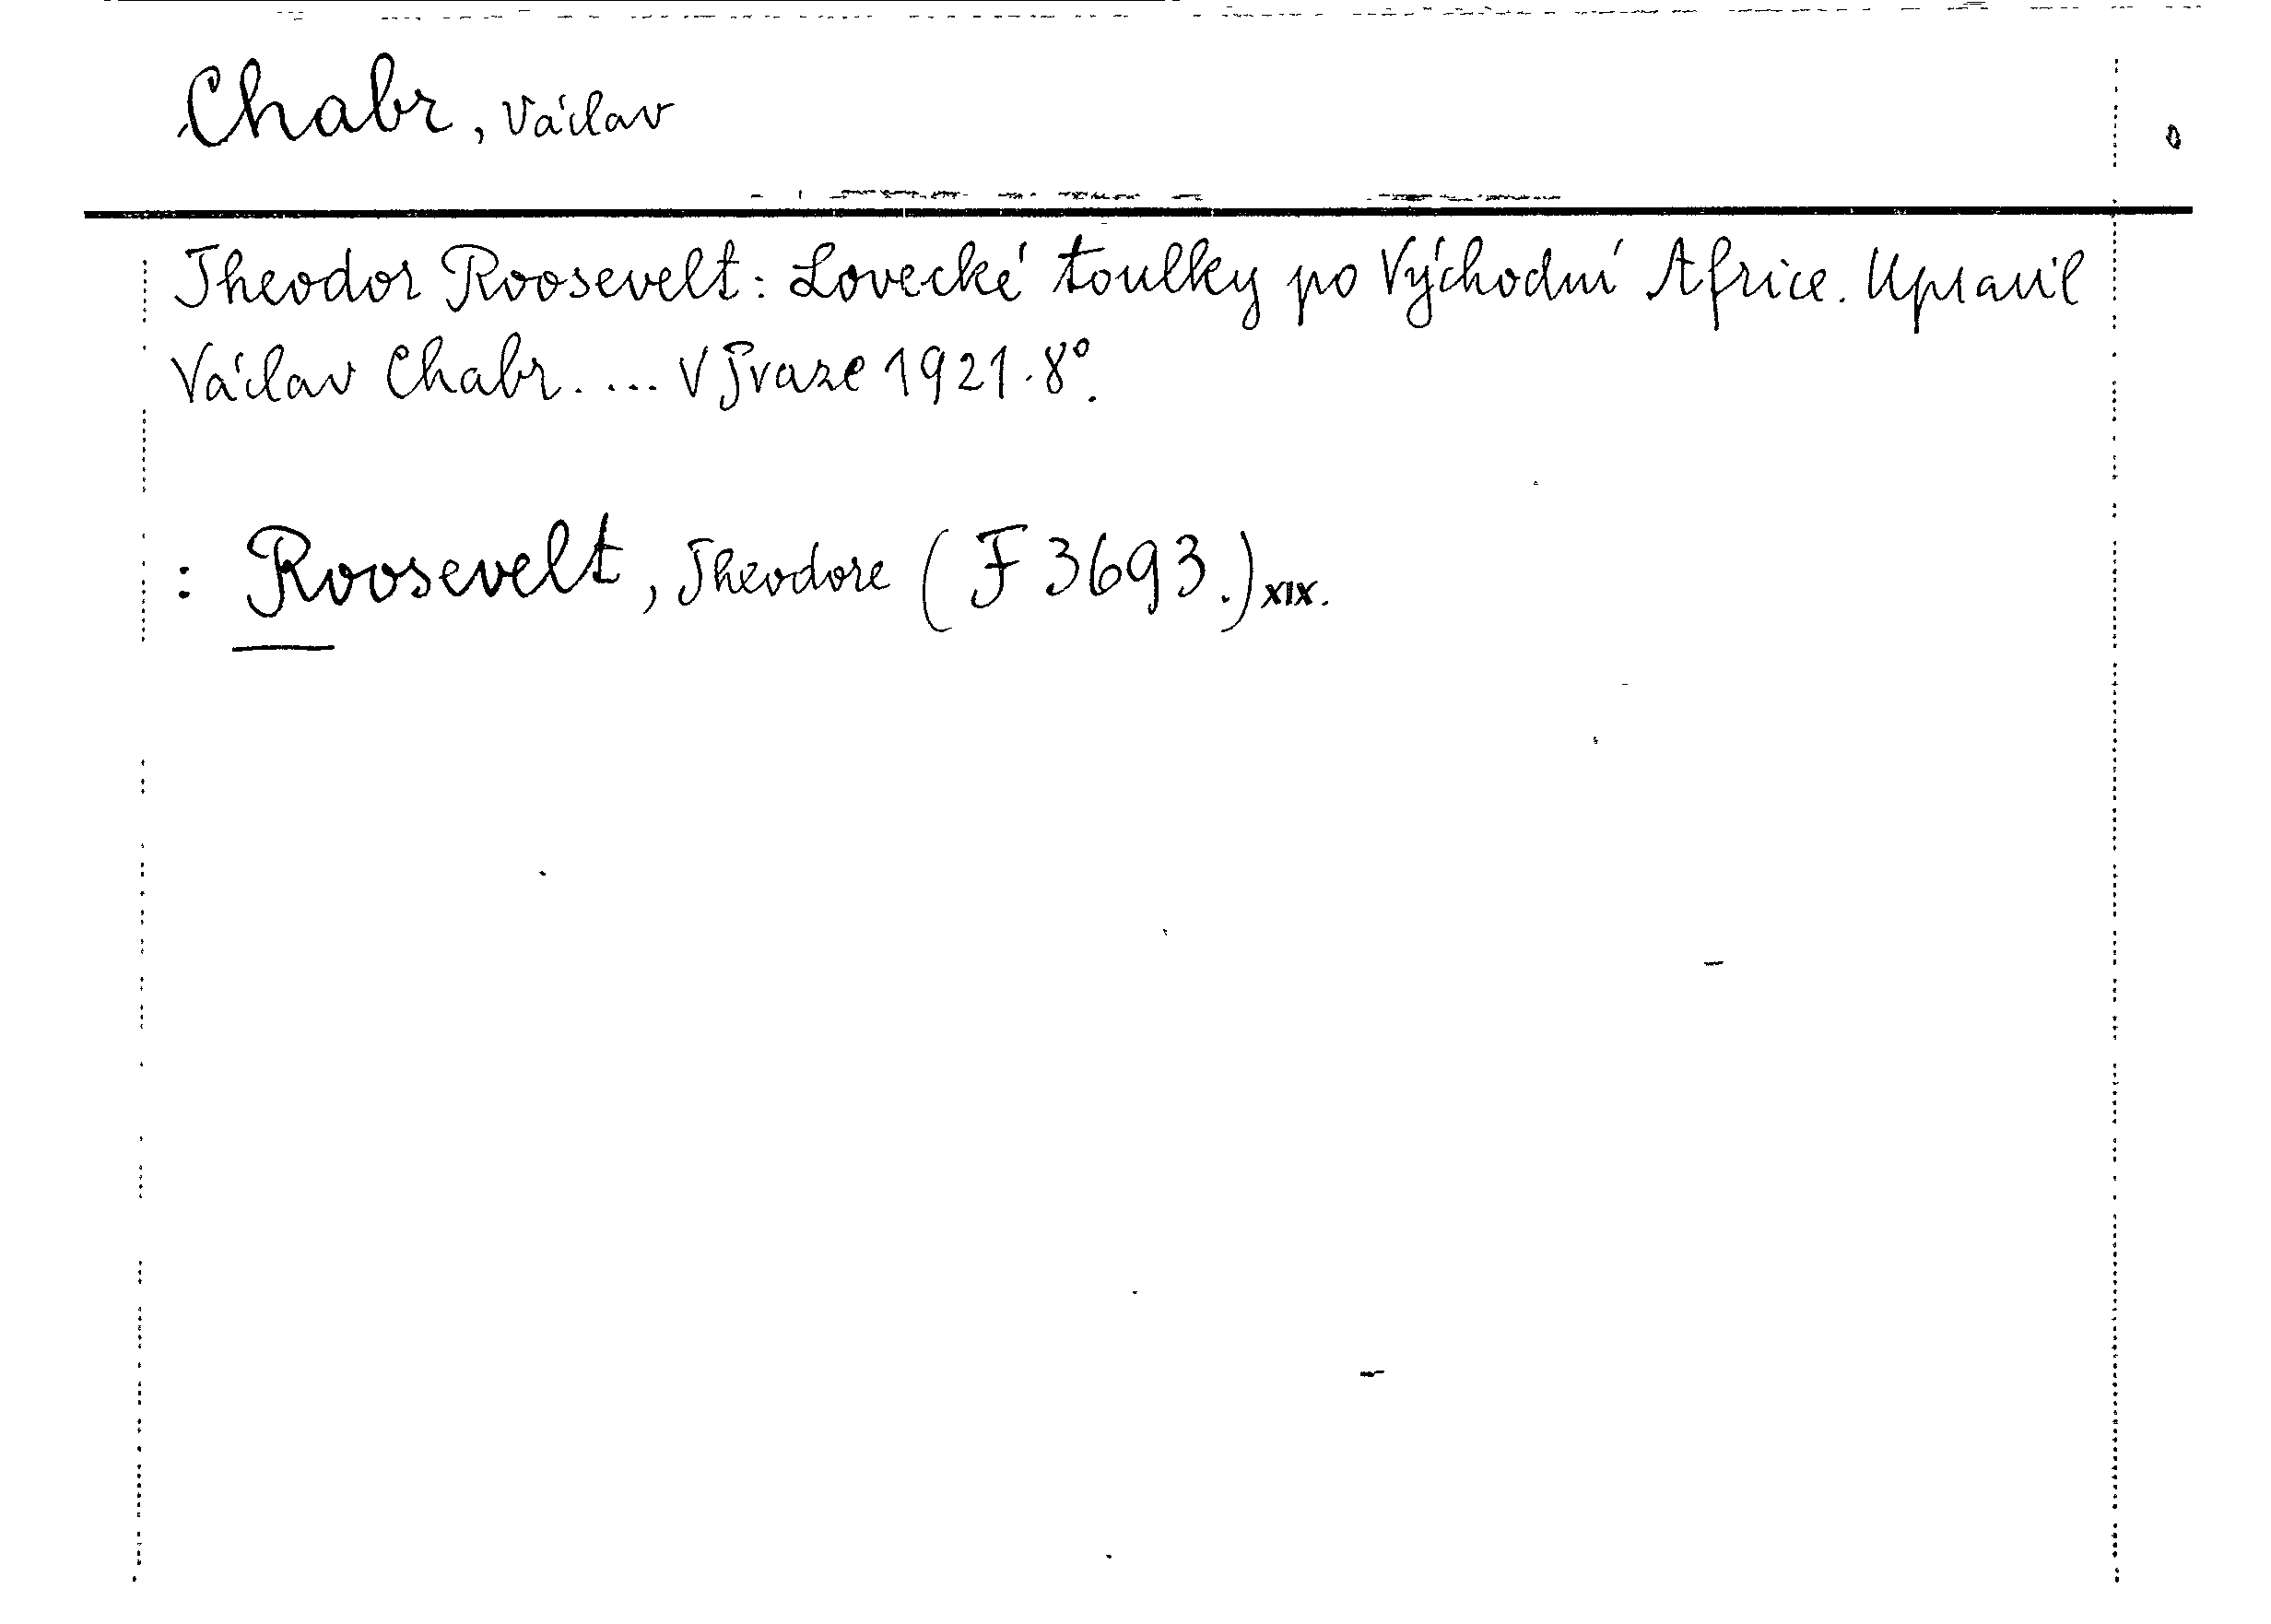 Chabr, Václav
Theodor Roosevelt: Lovecké toulky po Východní Africe. Upravil
Václav Chabr. ... V Praze 1921. 8°.
: Roosevelt, Theodore (F 3693.) XIX.